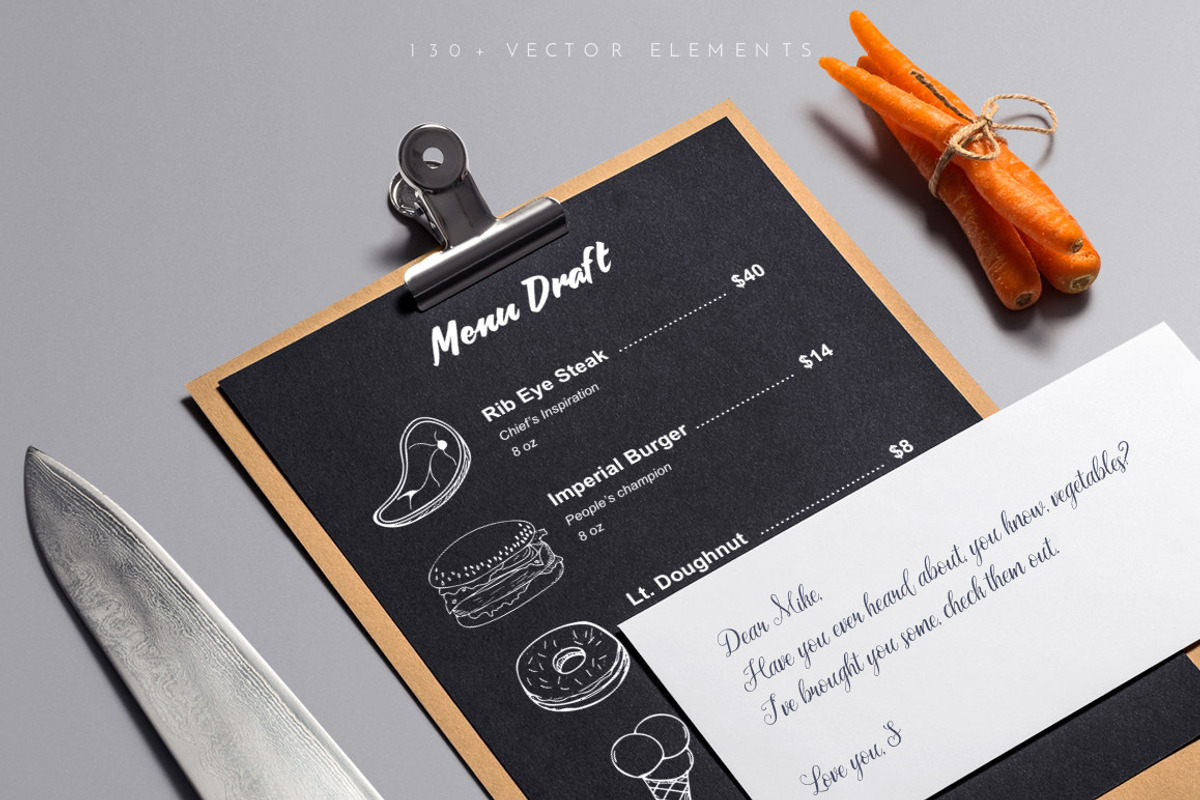 130+ VECTOR ELEMENTS
Menu Draft
Rib Eye Steak $40
Chief's Inspiration
8 oz
Imperial Burger $14
People's champion
8 oz
Lt. Doughnut $8
Dear Mike,
Have you ever heard about, you know, vegetables?
I've brought you some, check them out.
Love you, S